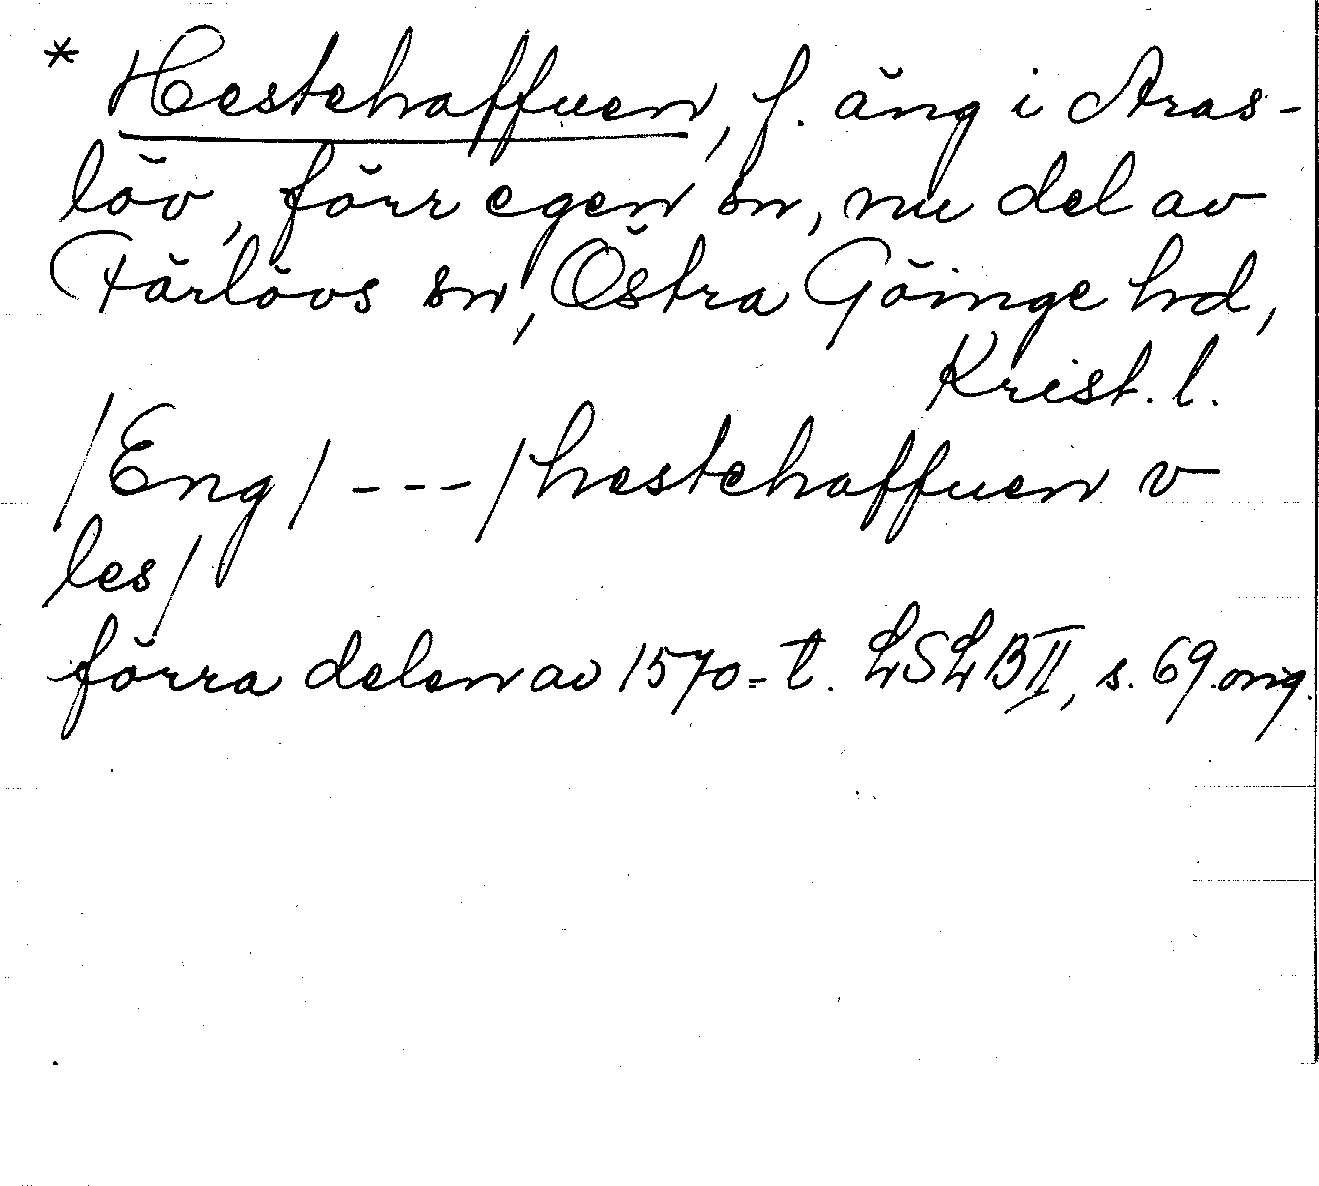 * Hestehaffuen, f. äng i Aras-
löv, förr egen sn, nu del av
Färlövs sn, Östra Göinge hd,
Krist. l.
/Eng/ --- /hestehaffuen v
les/
förra delen av 1570-t. LSLB II, s. 69. orig.